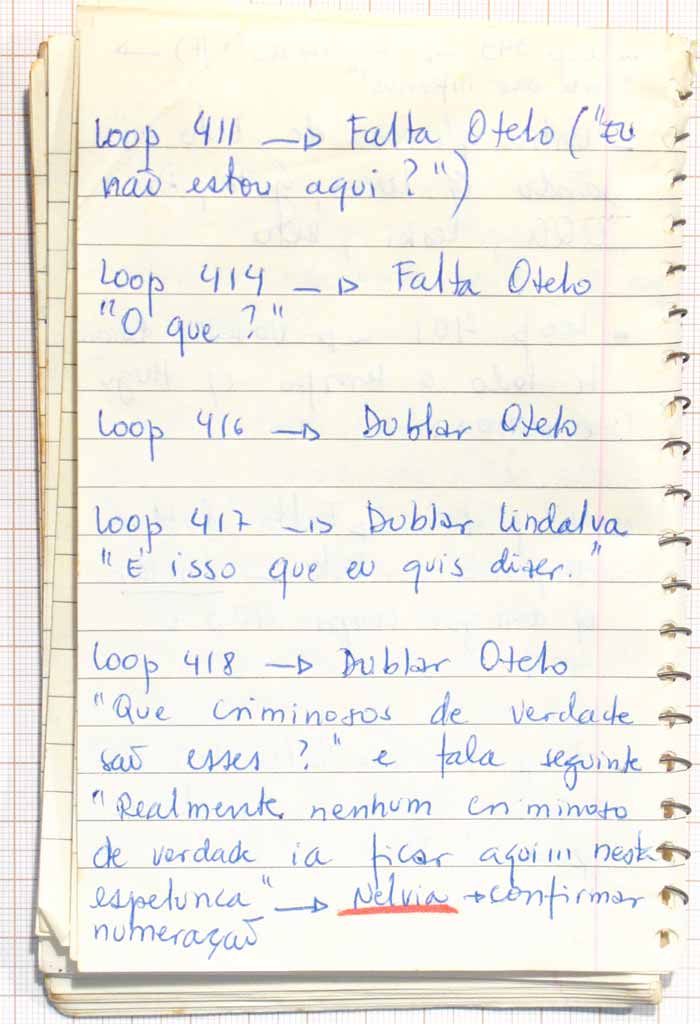 Loop 411 → Falta Otelo ("Eu
não estou aqui?")
Loop 414 → Falta Otelo
"O que?"
Loop 416 → Dublar Otelo
Loop 417 → Dublar Lindalva
"É isso que eu quis dizer."
Loop 418 → Dublar Otelo
"Que criminosos de verdade
são esses?" e fala seguinte
"Realmente, nenhum criminoso
de verdade ia ficar aqui... nesta
espelunca" → Nelvia → confirmar
numeração